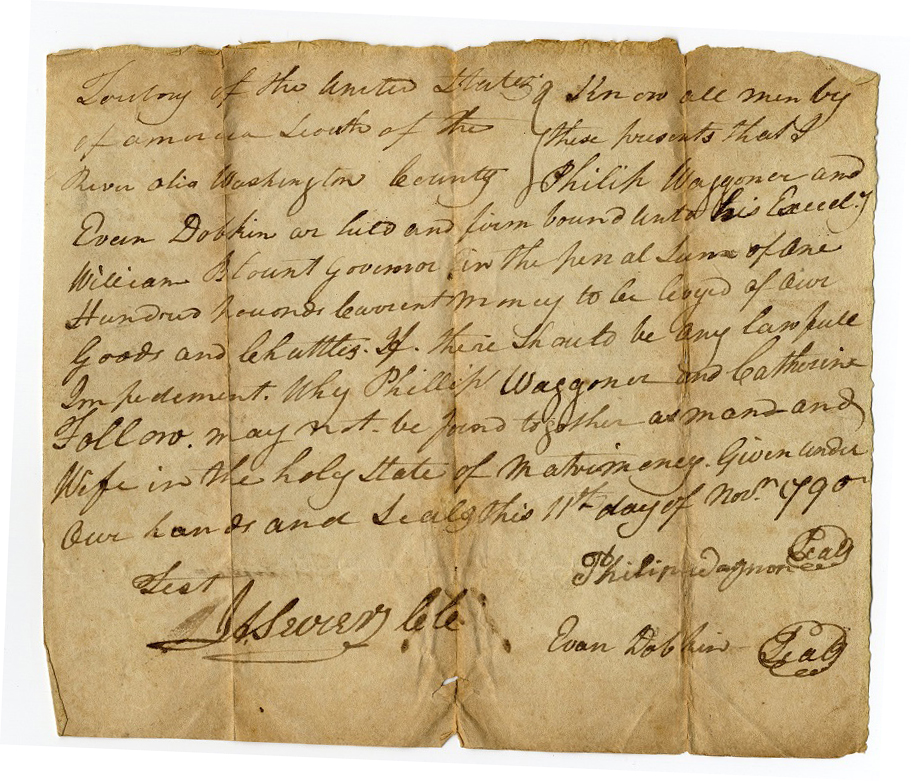 Teritory of the United States } Know all men by
of amorica South of the } these presents that I
River olio Washington County } Philip Waggoner and
Evan Dobkin ar held and firm bound unto his Excely
William Blount Govornor in the penal Sum of One
Hundred pounds Current money to be levy'd of Our
Goods and Chattles. If. there Should be any lawfull
Impedement. Why Phillip Waggoner and Catherine
Follow. may not be joind together as man and
Wife in the holy State of Matrimoney. Given under
Our hands and Seals this 11th day of Novr 1790
Philip Wagnor Seal
Test
Js Sevier Clk
Evan Dobkin Seal